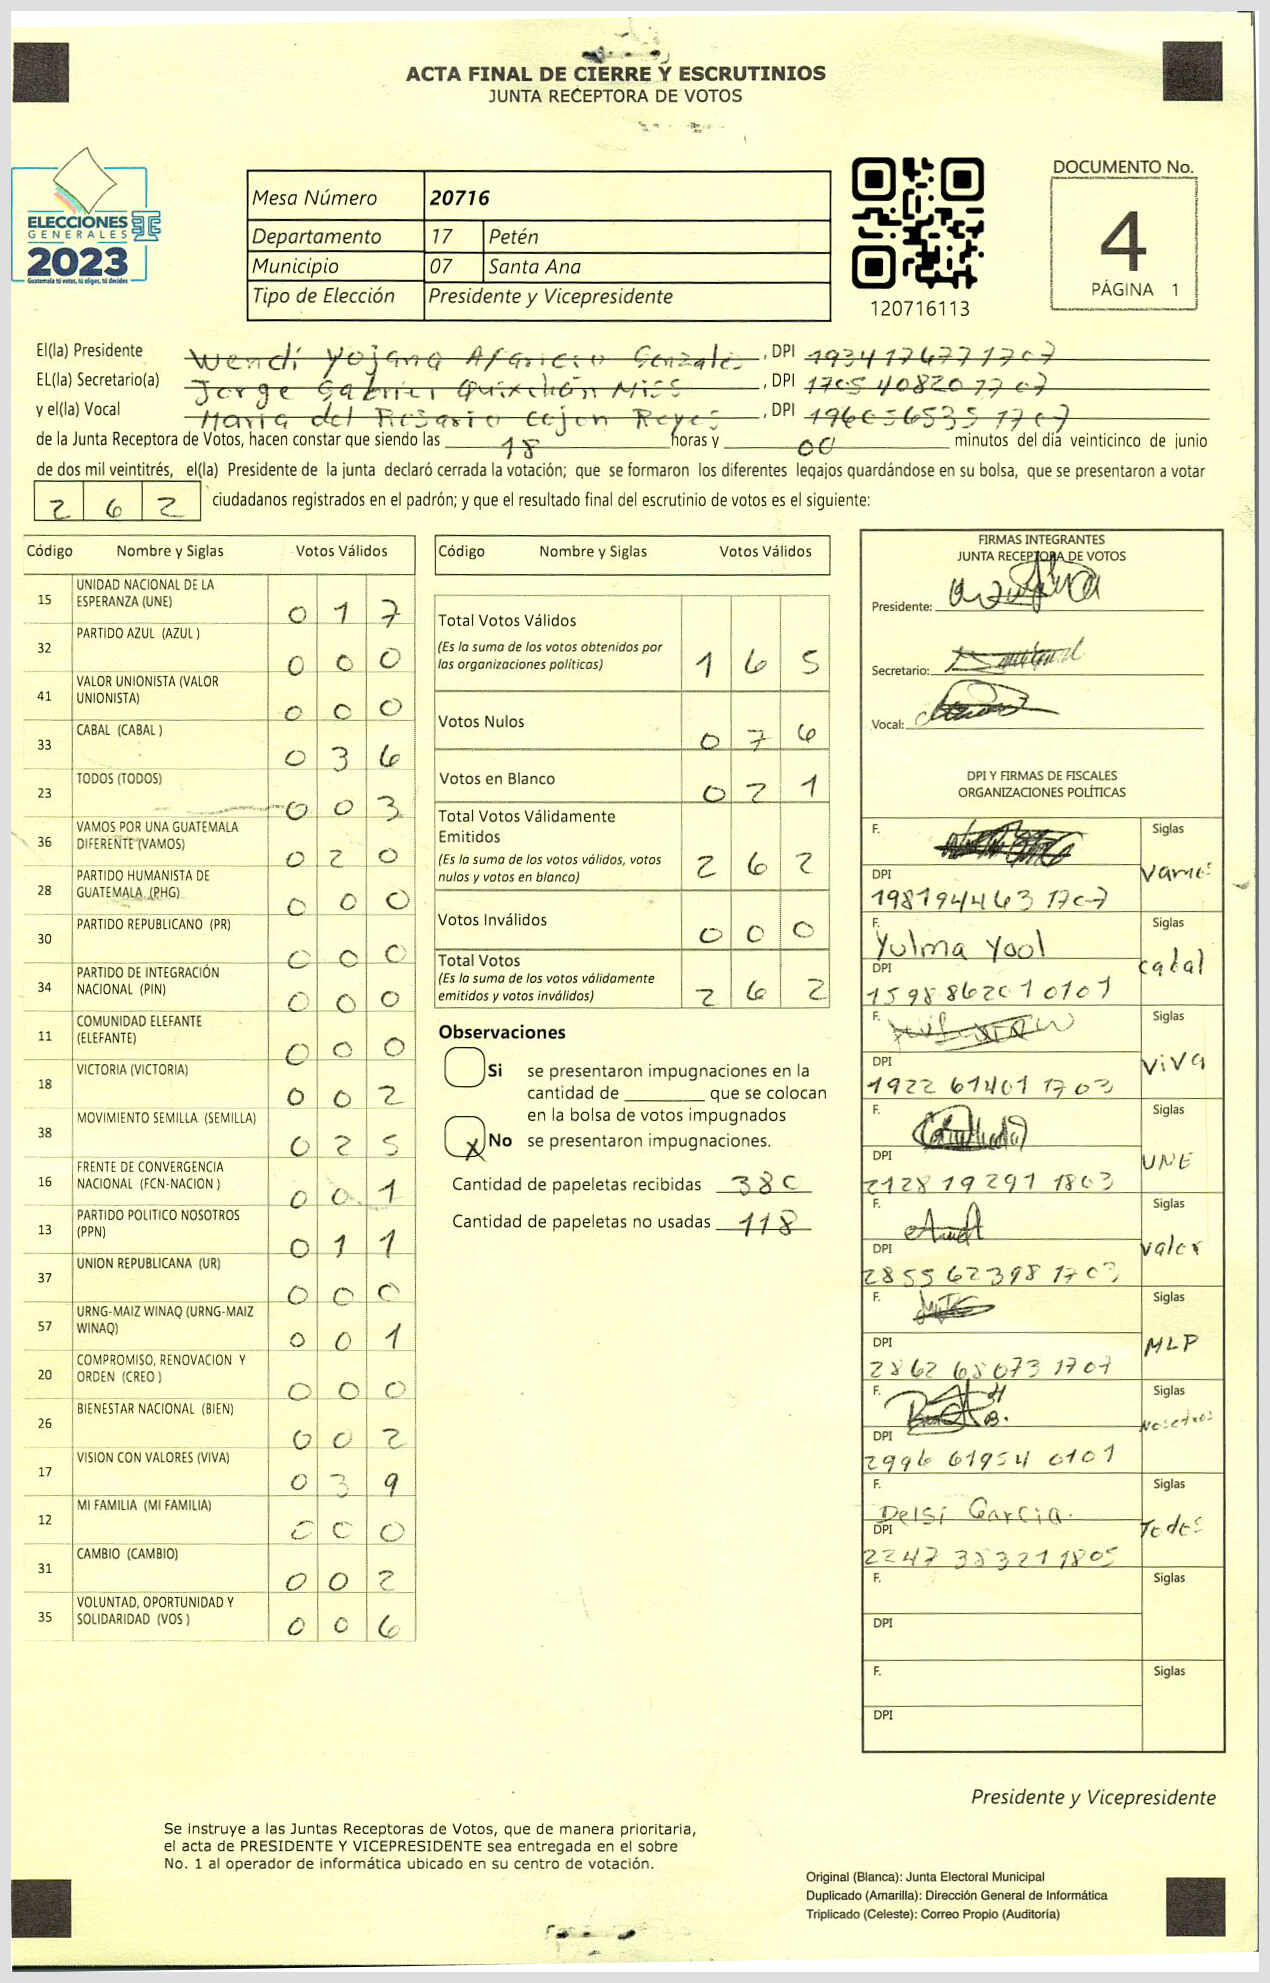 ACTA FINAL DE CIERRE Y ESCRUTINIOS
JUNTA RECEPTORA DE VOTOS
ELECCIONES
GENERALES
2023
Guatemala tú votas, tú eliges, tú decides
Mesa Número 20716
Departamento 17 Petén
Municipio 07 Santa Ana
Tipo de Elección Presidente y Vicepresidente
120716113
DOCUMENTO No.
4
PÁGINA 1
El(la) Presidente Wendi Yojana Aparicio Gonzales, DPI 1934176771707
EL(la) Secretario(a) Jorge Gabriel Quixchán Miss, DPI 1705408201707
y el(la) Vocal Maria del Rosario Cajon Reyes, DPI 1960565351707
de la Junta Receptora de Votos, hacen constar que siendo las 18 horas y 00 minutos del día veinticinco de junio
de dos mil veintitrés, el(la) Presidente de la junta declaró cerrada la votación; que se formaron los diferentes legajos quardándose en su bolsa, que se presentaron a votar
262 ciudadanos registrados en el padrón; y que el resultado final del escrutinio de votos es el siguiente:
Código Nombre y Siglas Votos Válidos
15 UNIDAD NACIONAL DE LA ESPERANZA (UNE) 017
32 PARTIDO AZUL (AZUL ) 000
41 VALOR UNIONISTA (VALOR UNIONISTA) 000
33 CABAL (CABAL ) 036
23 TODOS (TODOS) 003
36 VAMOS POR UNA GUATEMALA DIFERENTE (VAMOS) 020
28 PARTIDO HUMANISTA DE GUATEMALA (PHG) 000
30 PARTIDO REPUBLICANO (PR) 000
34 PARTIDO DE INTEGRACIÓN NACIONAL (PIN) 000
11 COMUNIDAD ELEFANTE (ELEFANTE) 000
18 VICTORIA (VICTORIA) 002
38 MOVIMIENTO SEMILLA (SEMILLA) 025
16 FRENTE DE CONVERGENCIA NACIONAL (FCN-NACION ) 001
13 PARTIDO POLITICO NOSOTROS (PPN) 011
37 UNION REPUBLICANA (UR) 000
57 URNG-MAIZ WINAQ (URNG-MAIZ WINAQ) 001
20 COMPROMISO, RENOVACION Y ORDEN (CREO ) 000
26 BIENESTAR NACIONAL (BIEN) 002
17 VISION CON VALORES (VIVA) 039
12 MI FAMILIA (MI FAMILIA) 000
31 CAMBIO (CAMBIO) 002
35 VOLUNTAD, OPORTUNIDAD Y SOLIDARIDAD (VOS ) 006
Código Nombre y Siglas Votos Válidos
Total Votos Válidos
(Es la suma de los votos obtenidos por
las organizaciones políticas) 165
Votos Nulos 076
Votos en Blanco 021
Total Votos Válidamente
Emitidos
(Es la suma de los votos válidos, votos
nulos y votos en blanco) 262
Votos Inválidos 000
Total Votos
(Es la suma de los votos válidamente
emitidos y votos inválidos) 262
Observaciones
Si se presentaron impugnaciones en la
cantidad de ________ que se colocan
en la bolsa de votos impugnados
X No se presentaron impugnaciones.
Cantidad de papeletas recibidas 380
Cantidad de papeletas no usadas 118
FIRMAS INTEGRANTES
JUNTA RECEPTORA DE VOTOS
Presidente:
Secretario:
Vocal:
DPI Y FIRMAS DE FISCALES
ORGANIZACIONES POLÍTICAS
F. Siglas
Vamos
DPI
198194463 1707
F. Yulma Yool Siglas
cabal
DPI
159886201 0101
F. Siglas
VIVA
DPI
1922 61401 1703
F. Siglas
UNE
DPI
2128 19291 1803
F. Siglas
Valor
DPI
2855 62398 1703
F. Siglas
MLP
DPI
2862 68073 1707
F. Siglas
Nosotros
DPI
2996 61954 0101
F. Delsi Garcia. Siglas
Todos
DPI
2247 38321 1805
F. Siglas
DPI
F. Siglas
DPI
Presidente y Vicepresidente
Se instruye a las Juntas Receptoras de Votos, que de manera prioritaria,
el acta de PRESIDENTE Y VICEPRESIDENTE sea entregada en el sobre
No. 1 al operador de informática ubicado en su centro de votación.
Original (Blanca): Junta Electoral Municipal
Duplicado (Amarilla): Dirección General de Informática
Triplicado (Celeste): Correo Propio (Auditoría)